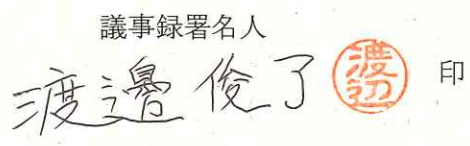 議事録署名人
渡邉俊了 渡辺 印